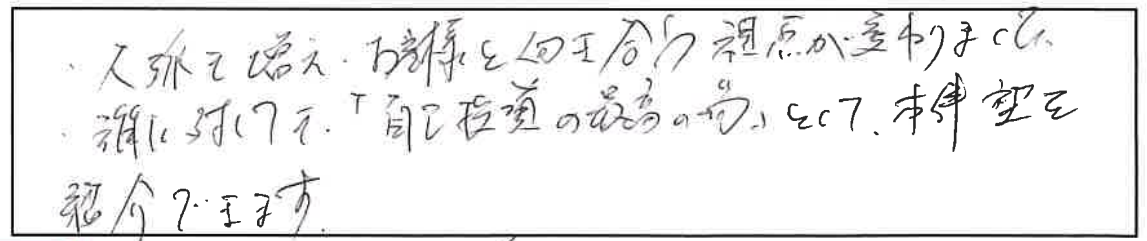 ・人脈も増え、お客様と向き合う視点が変わりました。
・誰に対しても、「自己投資の最高の場」として、本 塾を
紹介できます。